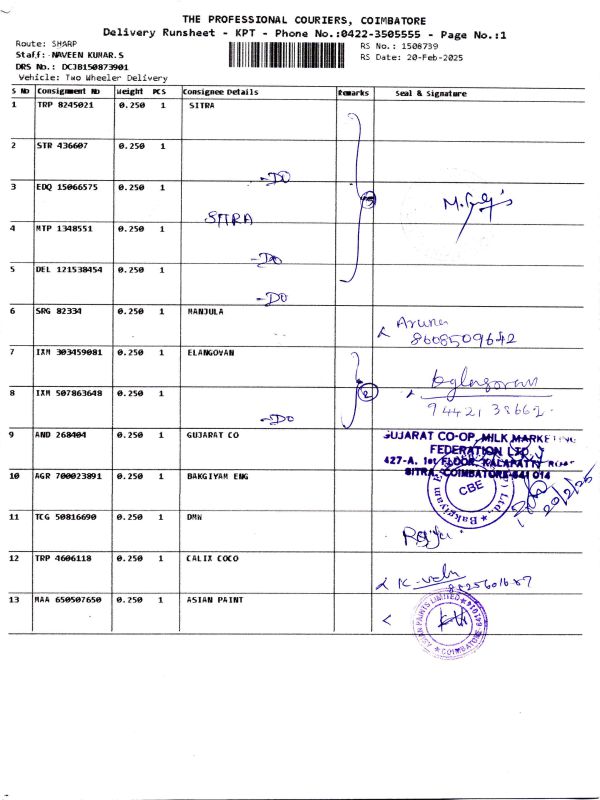 THE PROFESSIONAL COURIERS, COIMBATORE
Delivery Runsheet - KPT - Phone No.:0422-3505555 - Page No.:1
Route: SHARP
RS No.: 1508739
Staff: NAVEEN KUMAR.S
RS Date: 20-Feb-2025
DRS No.: DCJB150873901
Vehicle: Two Wheeler Delivery
S No Consignment No Weight PCS Consignee Details Remarks Seal & Signature
1 TRP 8245021 0.250 1 SITRA
2 STR 436607 0.250 1
-DO
3 EDQ 15066575 0.250 1
SITRA
4 MTP 1348551 0.250 1
-DO
5 DEL 121538454 0.250 1
-DO
6 SRG 82334 0.250 1 MANJULA
Aruna
8608509642
7 IXM 303459081 0.250 1 ELANGOVAN
8 IXM 507863648 0.250 1
2
94421 38662
-DO
9 AND 268404 0.250 1 GUJARAT CO
GUJARAT CO-OP, MILK MARKETING
FEDERATION LTD.,
427-A, 1st FLOOR, KALAPATTI ROAD
SITRA, COIMBATORE-641 014
10 AGR 700023891 0.250 1 BAKGIYAM ENG
CBE
20/2/25
11 TCG 50816690 0.250 1 DMW
12 TRP 4606118 0.250 1 CALIX COCO
13 MAA 650507650 0.250 1 ASIAN PAINT
ASIAN PAINTS LIMITED
COIMBATORE 641014